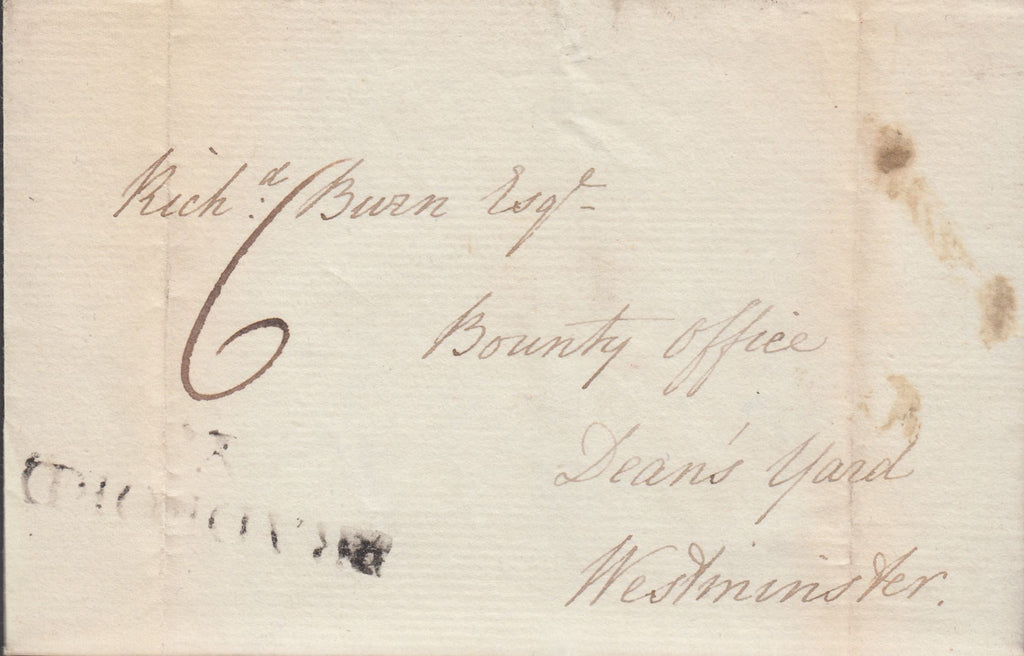 Rich.ᵈ Burn Esqʳ
6
Bounty Office
Dean's Yard
Westminster.